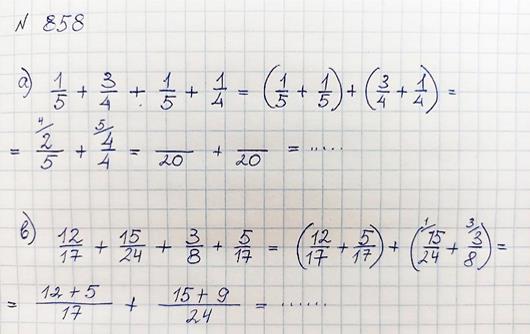 N 858
а) 1/5 + 3/4 + 1/5 + 1/4 = (1/5 + 1/5) + (3/4 + 1/4) =
= ⁴⁄2/5 + ⁵⁄4/4 = /20 + /20 = .....
в) 12/17 + 15/24 + 3/8 + 5/17 = (12/17 + 5/17) + (¹⁄15/24 + ³⁄3/8) =
= 12+5/17 + 15+9/24 = ......